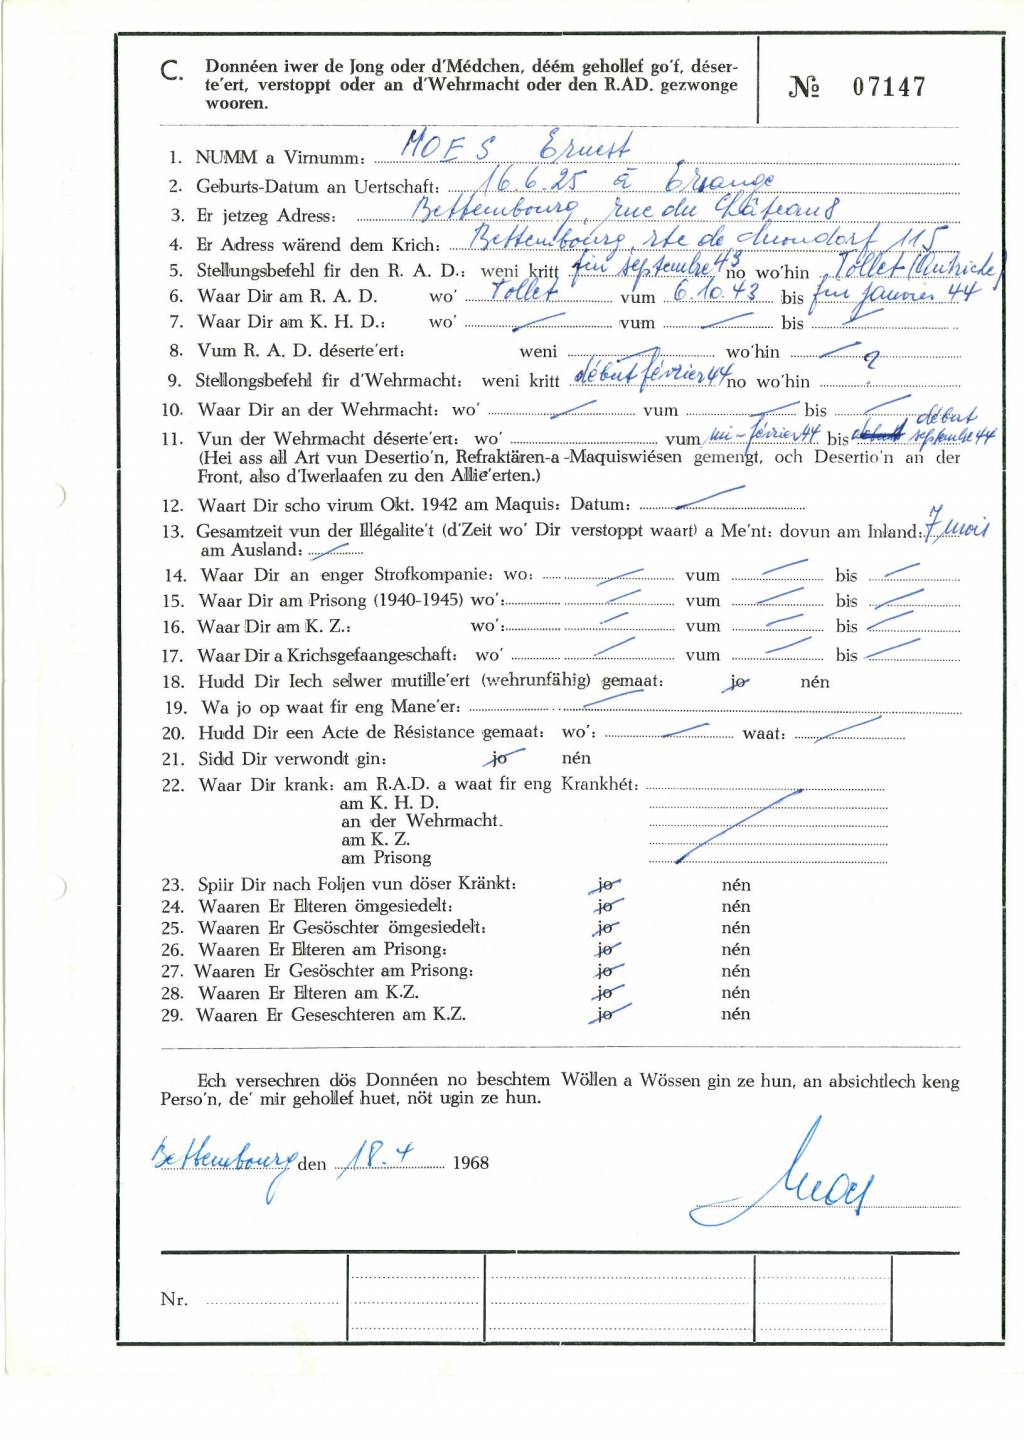 C. Donnéen iwer de Jong oder d'Médchen, déém gehollef go'f, déser-
te'ert, verstoppt oder an d'Wehrmacht oder den R.AD. gezwonge
wooren.
№ 07147
1. NUMM a Virnumm: MOES Ernest
2. Geburts-Datum an Uertschaft: 16.6.25 à Ersange
3. Er jetzeg Adress: Bettembourg, rue du Château 8
4. Er Adress wärend dem Krich: Bettembourg, rte de Mondorf 115
5. Stellungsbefehl fir den R. A. D.: weni kritt fin septembre 43 no wo'hin Tollet (Autriche)
6. Waar Dir am R. A. D. wo' Tollet vum 6.10.43 bis fin janvier 44
7. Waar Dir am K. H. D.: wo' vum bis
8. Vum R. A. D. déserte'ert: weni wo'hin
9. Stellongsbefehl fir d'Wehrmacht: weni kritt début février 44 no wo'hin ?
10. Waar Dir an der Wehrmacht: wo' vum bis
11. Vun der Wehrmacht déserte'ert: wo' vum mi-février 44 bis début septembre 44
(Hei ass all Art vun Desertio'n, Refraktären-a-Maquiswiésen gemengt, och Desertio'n an der
Front, also d'Iwerlaafen zu den Allie'erten.)
12. Waart Dir scho virum Okt. 1942 am Maquis: Datum:
13. Gesamtzeit vun der Illégalite't (d'Zeit wo' Dir verstoppt waart) a Me'nt: dovun am Inland: 7 mois
am Ausland:
14. Waar Dir an enger Strofkompanie: wo: vum bis
15. Waar Dir am Prisong (1940-1945) wo': vum bis
16. Waar Dir am K. Z.: wo': vum bis
17. Waar Dir a Krichsgefaangeschaft: wo' vum bis
18. Hudd Dir Iech selwer mutille'ert (wehrunfähig) gemaat: jo nén
19. Wa jo op waat fir eng Mane'er:
20. Hudd Dir een Acte de Résistance gemaat: wo': waat:
21. Sidd Dir verwondt gin: jo nén
22. Waar Dir krank: am R.A.D. a waat fir eng Krankhét:
am K. H. D.
an der Wehrmacht.
am K. Z.
am Prisong
23. Spiir Dir nach Foljen vun döser Kränkt: jo nén
24. Waaren Er Elteren ömgesiedelt: jo nén
25. Waaren Er Gesöschter ömgesiedelt: jo nén
26. Waaren Er Elteren am Prisong: jo nén
27. Waaren Er Gesöschter am Prisong: jo nén
28. Waaren Er Elteren am K.Z. jo nén
29. Waaren Er Geseschteren am K.Z. jo nén
Ech versechren dös Donnéen no beschtem Wöllen a Wössen gin ze hun, an absichtlech keng
Perso'n, de' mir gehollef huet, nöt ugin ze hun.
Bettembourg den 18.4 1968
Moes
Nr.